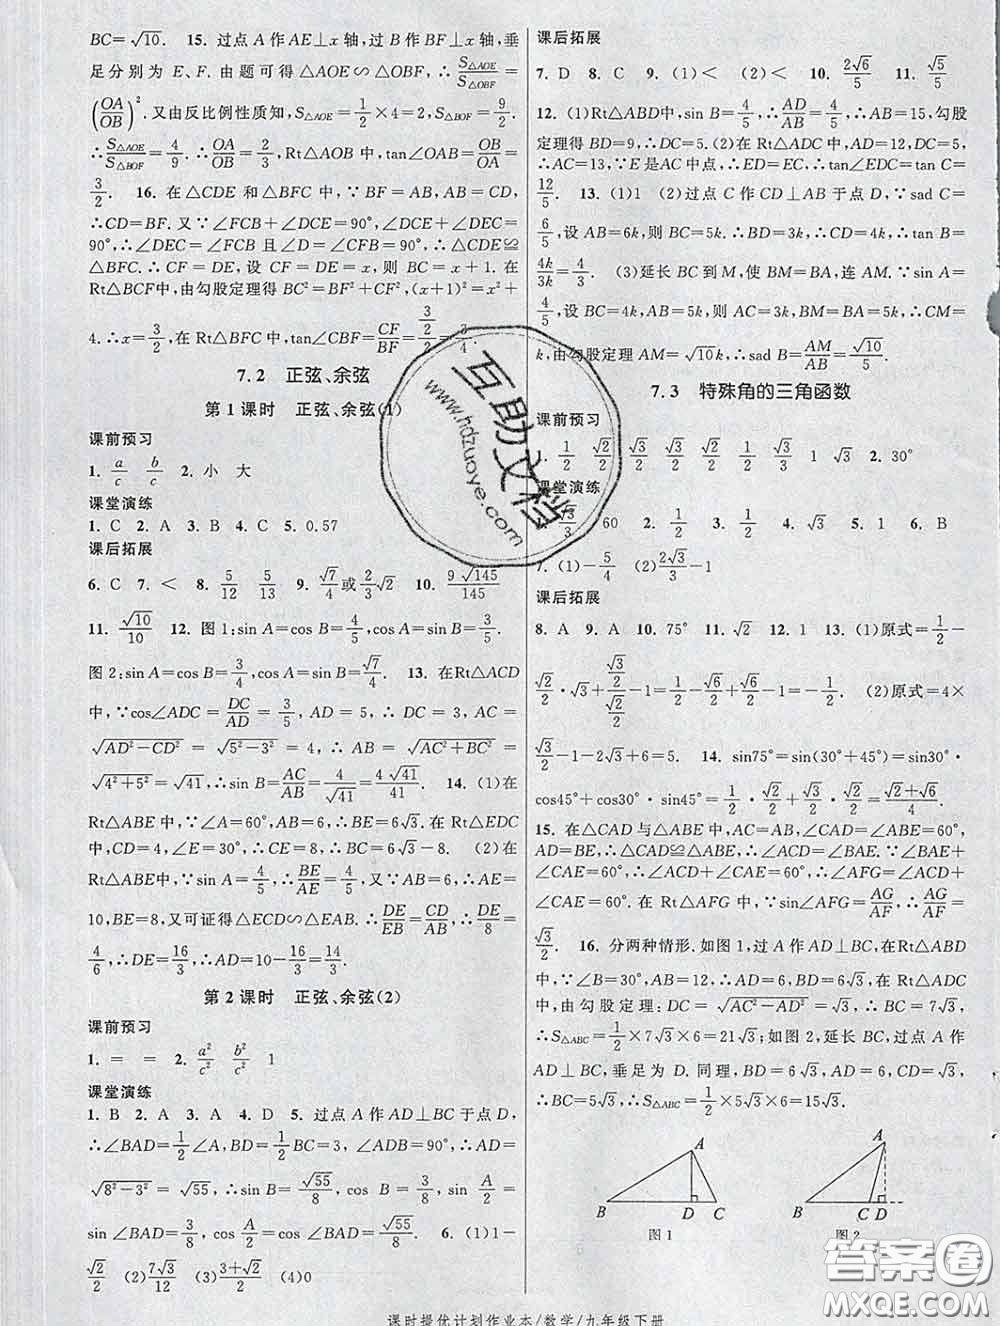 BC=√10.　15. 过点 A 作 AE⊥x 轴,过 B 作 BF⊥x 轴,垂
足分别为 E、F. 由题可得△AOE∽△OBF,∴S△AOE/S△OBF=
(OA/OB)². 又由反比例性质知,S△AOE=1/2×4=2,S△BOF=9/2.
∴S△AOE/S△BOF=4/9. ∴OA/OB=2/3,Rt△AOB 中,tan∠OAB=OB/OA=
3/2.　16. 在△CDE 和△BFC 中,∵BF=AB,AB=CD,
∴CD=BF. 又∵∠FCB+∠DCE=90°,∠DCE+∠DEC=
90°,∴∠DEC=∠FCB 且∠D=∠CFB=90°,∴△CDE≌
△BFC. ∴CF=DE,设 CF=DE=x,则 BC=x+1. 在
Rt△BCF中,由勾股定理得 BC²=BF²+CF²,(x+1)²=x²+
4. ∴x=3/2,在 Rt△BFC 中,tan∠CBF=CF/BF=(3/2)/2=3/4.
7.2　正弦、余弦
第 1 课时　正弦、余弦(1)
课前预习
1. a/c　b/c　2. 小　大
课堂演练
1. C　2. A　3. B　4. C　5. 0.57
课后拓展
6. C　7. <　8. 5/12　5/13　9. √7/4或2/3√3　10. 9√145/145
11. √10/10　12. 图 1:sin A=cos B=4/5,cos A=sin B=3/5.
图 2:sin A=cos B=3/4,cos A=sin B=√7/4.　13. 在Rt△ACD
中,∵cos∠ADC=DC/AD=3/5,AD=5,∴DC=3,AC=
√(AD²-CD²)=√(5²-3²)=4,∴AB=√(AC²+BC²)=
√(4²+5²)=√41,∴sin B=AC/AB=4/√41=4√41/41.　14. (1)在
Rt△ABE 中,∵∠A=60°,AB=6,∴BE=6√3. 在Rt△EDC
中,CD=4,∠E=30°,∴CE=8,∴BC=6√3-8.　(2)在
Rt△ABE 中,∵sin A=4/5,∴BE/AE=4/5,又∵AB=6,∴AE=
10,BE=8,又可证得△ECD∽△EAB. ∴DE/EB=CD/AB,∴DE/8=
4/6,∴DE=16/3,∴AD=10-16/3=14/3.
第 2 课时　正弦、余弦(2)
课前预习
1. =　=　2. a²/c²　b²/c²　1
课堂演练
1. B　2. A　3. A　4. D　5. 过点 A 作 AD⊥BC 于点 D,
∴∠BAD=1/2∠A,BD=1/2BC=3,∠ADB=90°,∴AD=
√(8²-3²)=√55,∴sin B=√55/8,cos B=3/8,sin A/2=
sin∠BAD=3/8,cos A/2=cos∠BAD=√55/8.　6. (1)1-
√2/2　(2)7√3/12　(3)(3+√2)/2　(4)0
课后拓展
7. D　8. C　9. (1)<　(2)<　10. 2√6/5　11. √5/5
12. (1)Rt△ABD中,sin B=4/5,∴AD/AB=4/5,∴AB=15,勾股
定理得 BD=9,∴DC=5.(2)在 Rt△ADC 中,AD=12,DC=5,
∴AC=13,∵E 是AC 中点,∴ED=EC,∴tan∠EDC=tan C=
12/5.　13. (1)1　(2)过点 C 作 CD⊥AB 于点 D,∵sad C=
6/5,设 AB=6k,则 BC=5k. ∴BD=3k,∴CD=4k,∴tan B=
4k/3k=4/3.　(3)延长 BC到 M,使 BM=BA,连 AM. ∵sin A=
4/5,设 BC=4k,则 AC=3k,AB=BM=BA=5k,∴CM=
k,由勾股定理 AM=√10k,∴sad B=AM/AB=√10/5.
7.3　特殊角的三角函数
课前预习
1. 1/2　√2/2　√3/2　√3/2　√2/2　1/2　√3/3　1　√3　2. 30°
课堂演练
√3/3　60　2. 1/2　3. 1/2　4. √3　5. 1　6. B
7. (1)-5/4　(2)2√3/3-1
课后拓展
8. A　9. A　10. 75°　11. √2　12. 1　13. (1)原式=1/2-
√2/2·√3+(√3/2)/(√3/2)-1=1/2-√6/2+√6/2-1=-1/2.　(2)原式=4×
√3/2-1-2√3+6=5.　14. ∴sin75°=sin(30°+45°)=sin30°·
cos45°+cos30°·sin45°=1/2·√2/2+√3/2·√2/2=(√2+√6)/4.
15. 在△CAD 与△ABE 中,AC=AB,∠CAD=∠ABE=60°,
AD=BE,∴△CAD≌△ABE. ∴∠ACD=∠BAE. ∵∠BAE+
∠CAE=60°,∴∠ACD+∠CAE=60°,∴∠AFG=∠ACD+
∠CAE=60°. 在 Rt△AFG 中,∵sin∠AFG=AG/AF,∴AG/AF=
√3/2.　16. 分两种情形. 如图 1,过 A 作 AD⊥BC,在Rt△ABD
中,∵∠B=30°,AB=12,∴AD=6,BD=6√3,在 Rt△ADC
中,由勾股定理:DC=√(AC²-AD²)=√3,∴BC=7√3,
∴S△ABC=1/2×7√3×6=21√3;如图 2,延长 BC,过点 A 作
AD⊥BC,垂足为 D. 同理,BD=6√3,AD=6,CD=√3,
∴BC=5√3,∴S△ABC=1/2×5√3×6=15√3.
A
B　D　C
图 1
A
B　C D
图 2
课时提优计划作业本/数学/九年级下册
互助文档
www.hdzuoye.com
答案圈
MXQE.COM